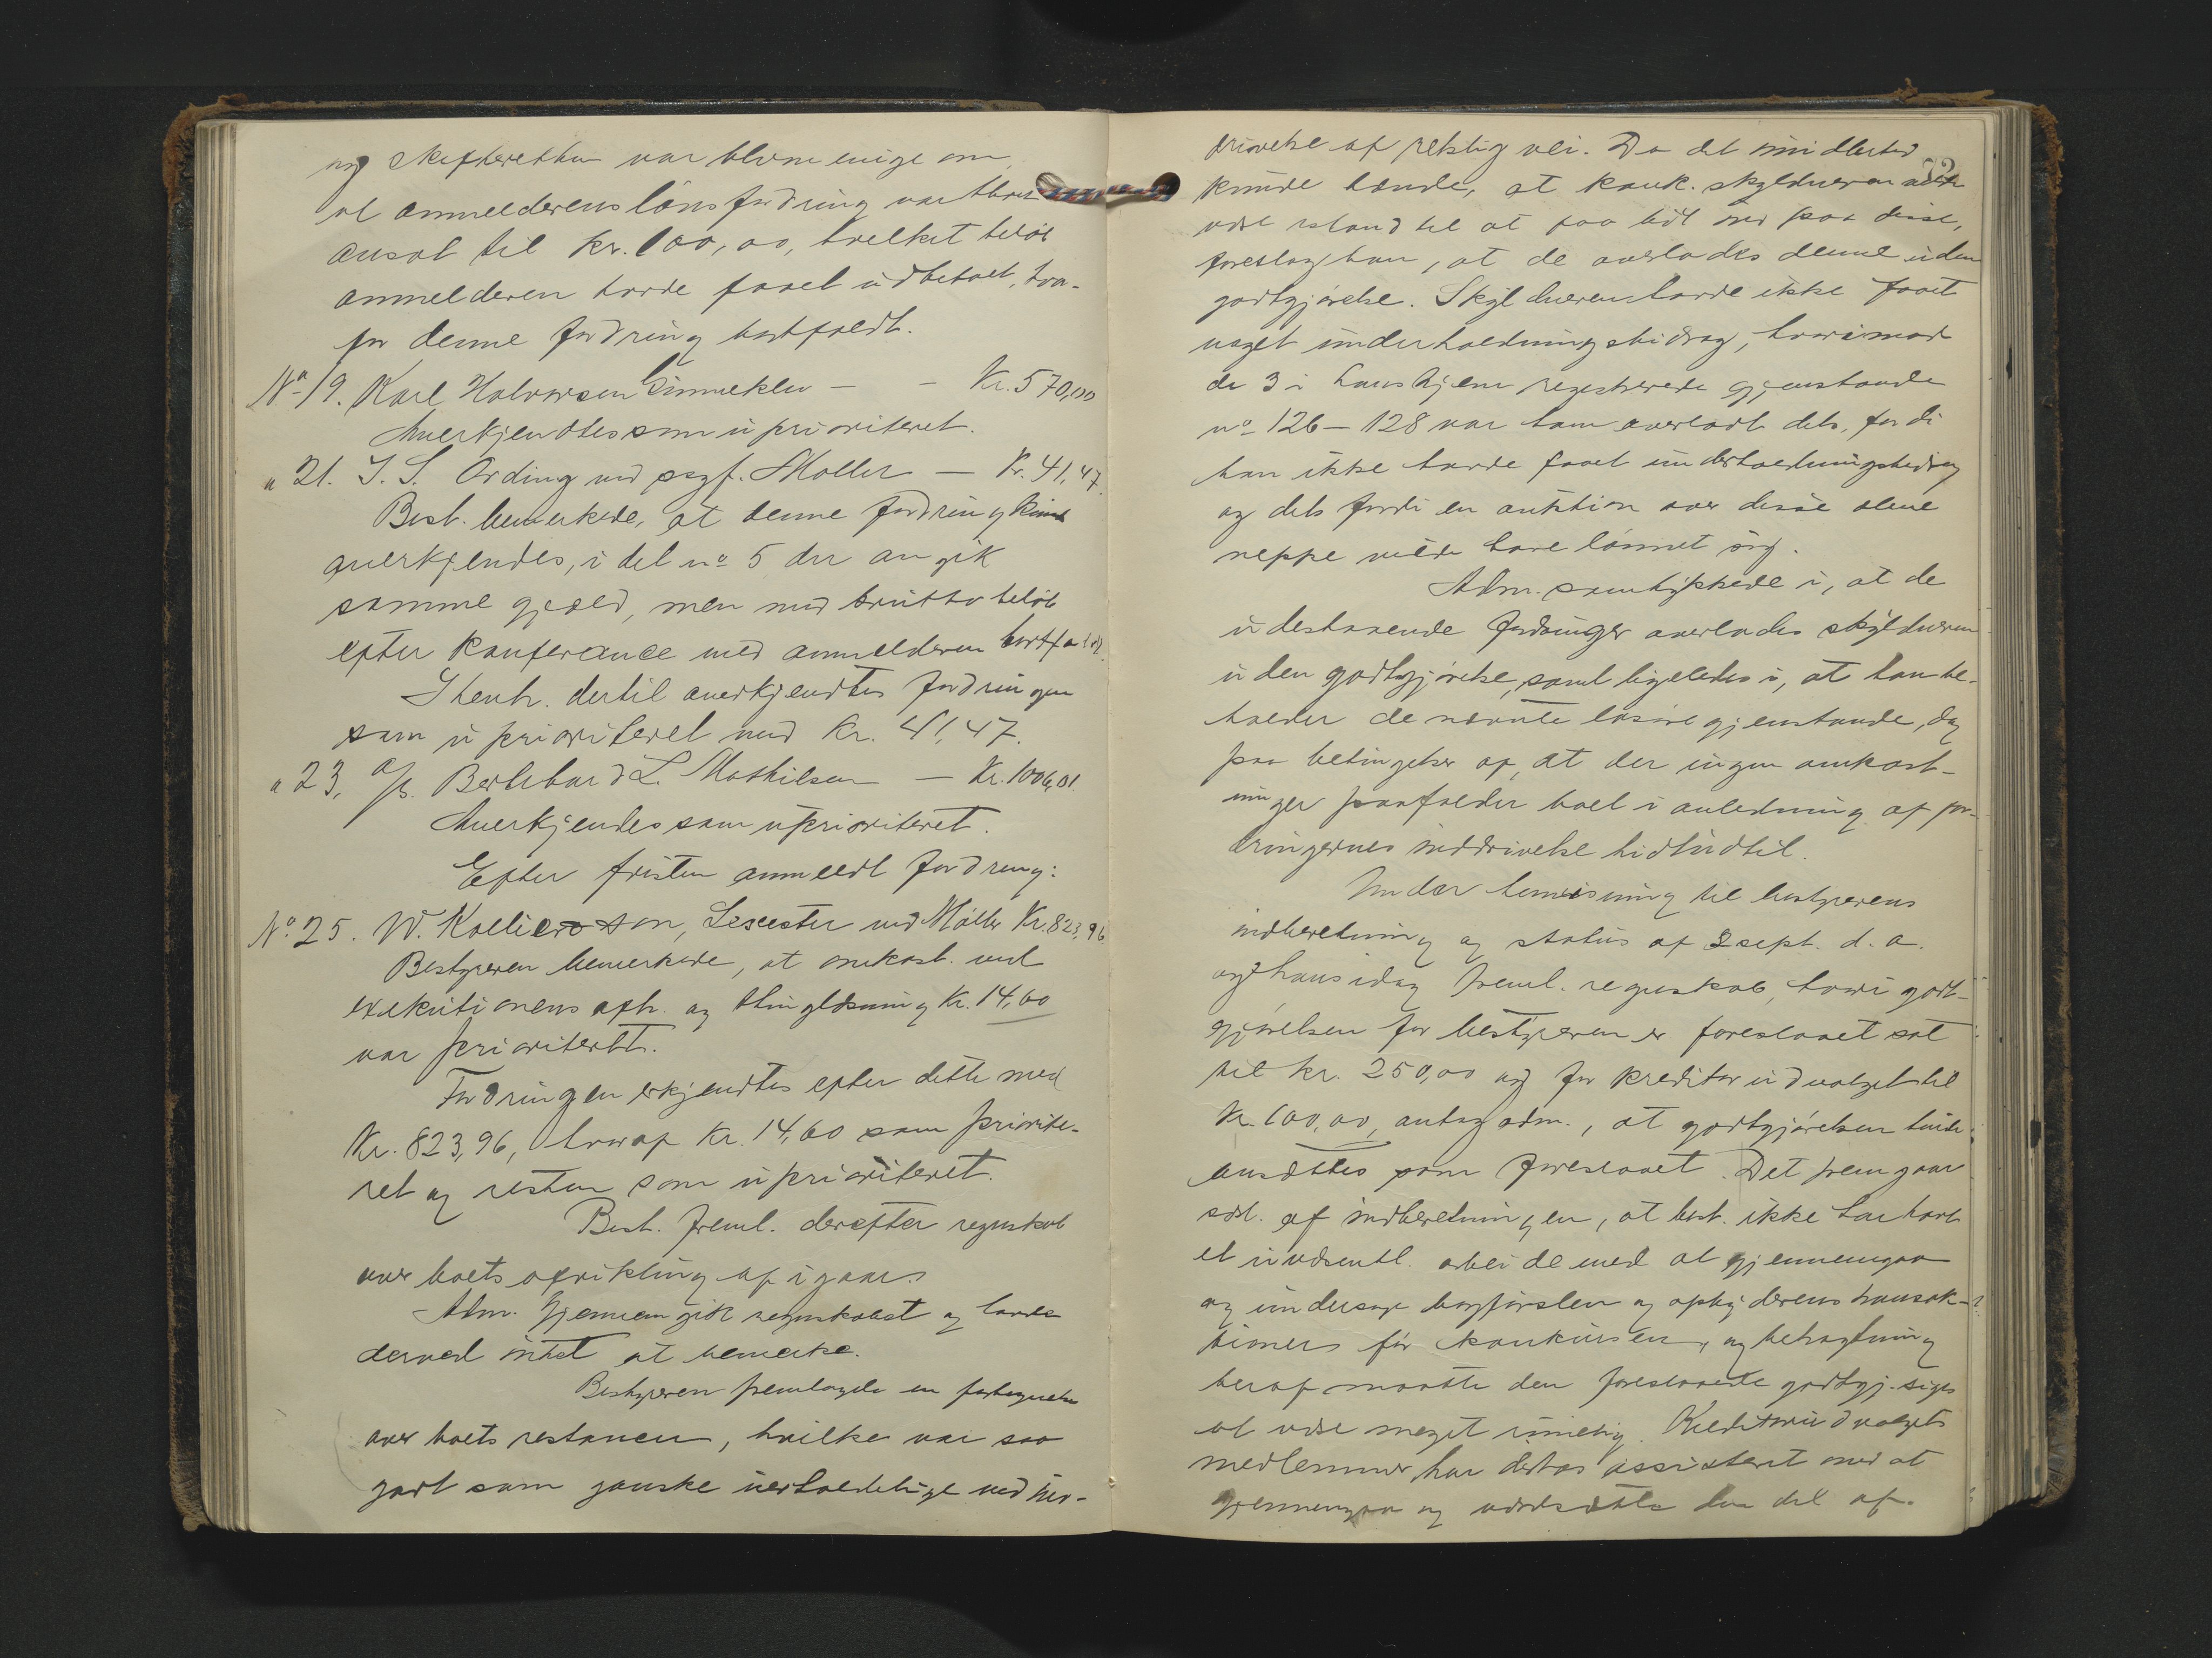 og skifteretten var blevne enige om,
at anmelderens lönsfordring var
ansat til kr. 100,00, hvilket belöb
anmelderen havde faaet udbetalt, hvor-
for denne fordring bortfaldt.
No 19. Karl Halvorsen - - Kr. 570,00
Anerkjendtes som uprioriteret.
" 21. J. S. Ording ved sagf. Møller - Kr. 41,47.
Best. bemerkede, at denne fordring kunde
anerkjendes, idet no 5 der angik
samme gjæld, men med brutto beløb
efter konferance med anmelderen bortfaldt.
I henh. dertil anerkjendtes fordringen
som uprioriteret med kr. 41,47.
" 23. A/S. Berthard L. Mathilsen - Kr. 1006,01
Anerkjendes som uprioriteret.
Efter fristen anmeldt fordring:
No 25. W. son, Leicester ved Møller Kr. 823,96
Bestyreren bemerkede, at omkost. ved
exekutionens afh. og thinglæsning Kr. 14,60
var prioritert.
Fordringen erkjendtes efter dette med
Kr. 823,96, hvoraf Kr. 14,60 som priorite-
ret og resten som uprioriteret.
Best. freml. derefter regnskab
over boets afvikling af igaar.
Adm. gjennemgik regnskabet og havde
derved intet at bemerke.
Bestyreren fremlagde en fortegnelse
over boets restancer, hvilke var saa
godt som ganske uerholdelige ved ind-
drivelse af retslig vei. Da det imidlertid
kunde hænde, at konk. skyldneren vilde
være istand til at faa lidt ind paa disse,
foreslog han, at de overlades denne uden
godtgjørelse. Skyldneren havde ikke faaet
noget underholdningsbidrag, hvorimod
de 3 i hans hjem registrerede gjenstande
no 126 - 128 var ham overladt dels, fordi
han ikke havde faaet underholdningsbidrag
og dels fordi en auktion over disse alene
neppe vilde have lönnet sig.
Adm. samtykkede i, at de
udestaaende fordringer overlades skyldneren
uden godtgjørelse, samt ligeledes i, at han be-
holder de nævnte løsøregjenstande, dog
paa betingelse af, at der ingen omkost-
ninger paafalder boet i anledning af for-
dringernes inddrivelse hidtil.
Under henvisning til bestyrerens
indberetning og status af 2 sept. d. a.
og hans idag freml. regnskab, hvori godt-
gjørelsen for bestyreren er foreslaaet sat
til kr. 250,00 og for kreditorudvalget til
Kr. 100,00, antog adm., at godtgjørelsen burde
ansættes som foreslaaet. Det fremgaar
særl. af indberetningen, at best. ikke har havt
et uvæsentl. arbeide med at gjennemgaa
og undersøge bogførslen og transak-
tioner før konkursen, og i betragtning
heraf maatte den foreslaaede godtgj. siges
at være meget rimelig. Kreditorudvalgets
medlemmer har derhos assisteret med at
gjennemgaa og værdsætte en del af